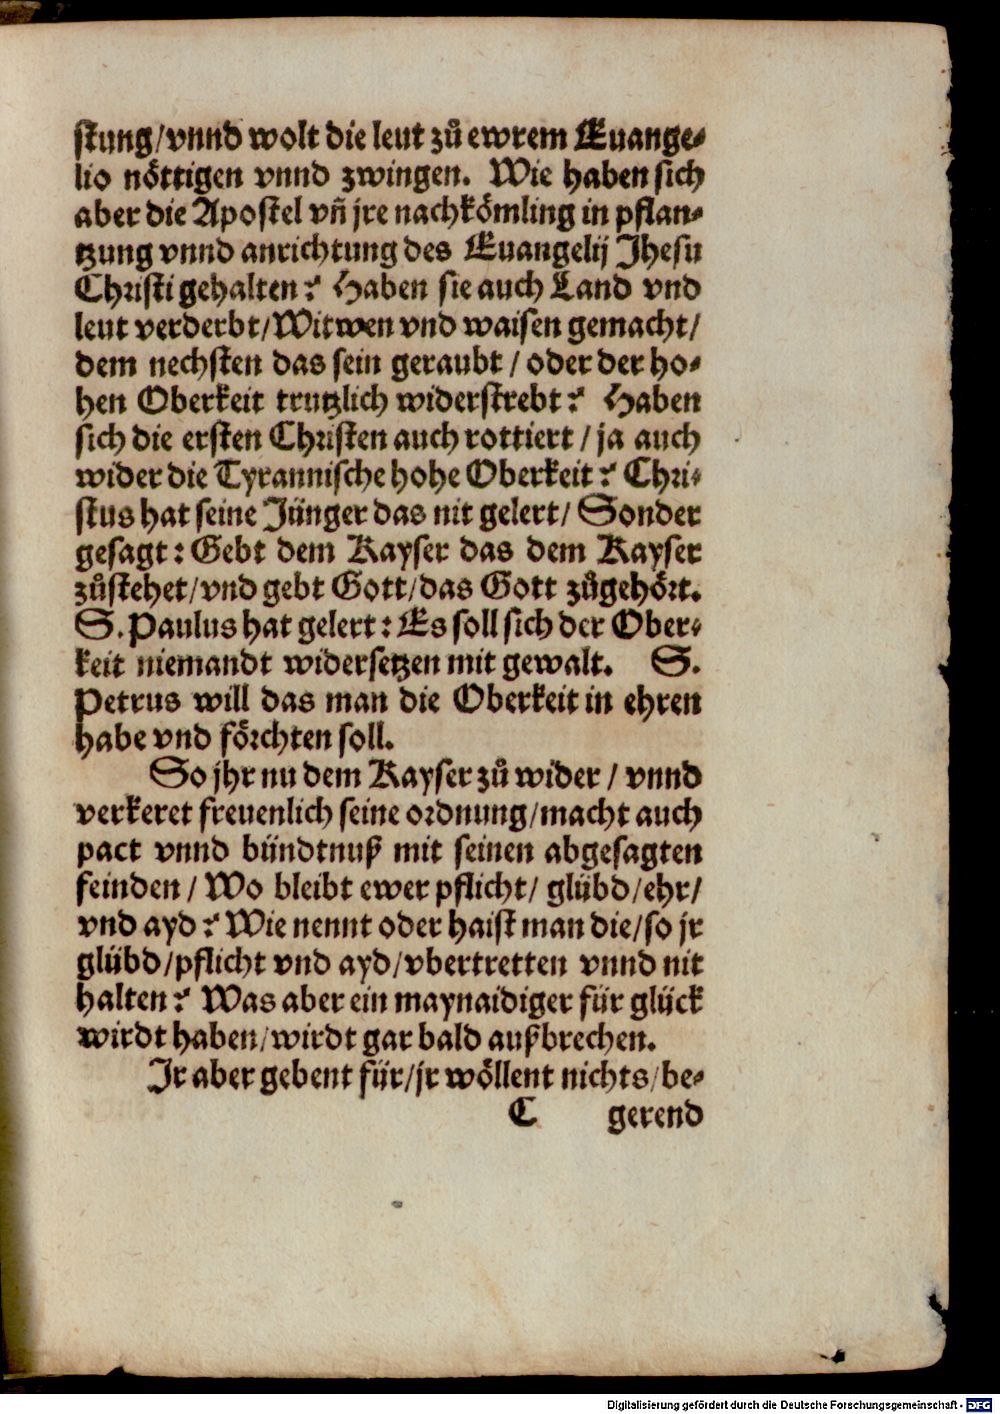 stung/vnnd wolt die leut zů ewrem Euange-
lio nöttigen vnnd zwingen. Wie haben sich
aber die Apostel vñ jre nachkömling in pflan-
tzung vnnd anrichtung des Euangelij Jhesu
Christi gehalten? Haben sie auch Land vnd
leut verderbt/Witwen vnd waisen gemacht/
dem nechsten das sein geraubt/ oder der ho-
hen Oberkeit trutzlich widerstrebt? Haben
sich die ersten Christen auch rottiert/ ja auch
wider die Tyrannische hohe Oberkeit? Chri-
stus hat seine Jünger das nit gelert/ Sonder
gesagt: Gebt dem Kayser das dem Kayser
zůstehet/vnd gebt Gott/das Gott zůgehört.
S. Paulus hat gelert: Es soll sich der Ober-
keit niemandt widersetzen mit gewalt. S.
Petrus will das man die Oberkeit in ehren
habe vnd förchten soll.
So jhr nu dem Kayser zů wider/ vnnd
verkeret freuenlich seine ordnung/macht auch
pact vnnd bündtnuß mit seinen abgesagten
feinden/ Wo bleibt ewer pflicht/ glübd/ehr/
vnd ayd? Wie nennt oder haist man die/so jr
glübd/pflicht vnd ayd/vbertretten vnnd nit
halten? Was aber ein maynaidiger für glück
wirdt haben/wirdt gar bald außbrechen.
Ir aber gebent für/jr wöllent nichts/be-
C gerend
Digitalisierung gefördert durch die Deutsche Forschungsgemeinschaft - DFG